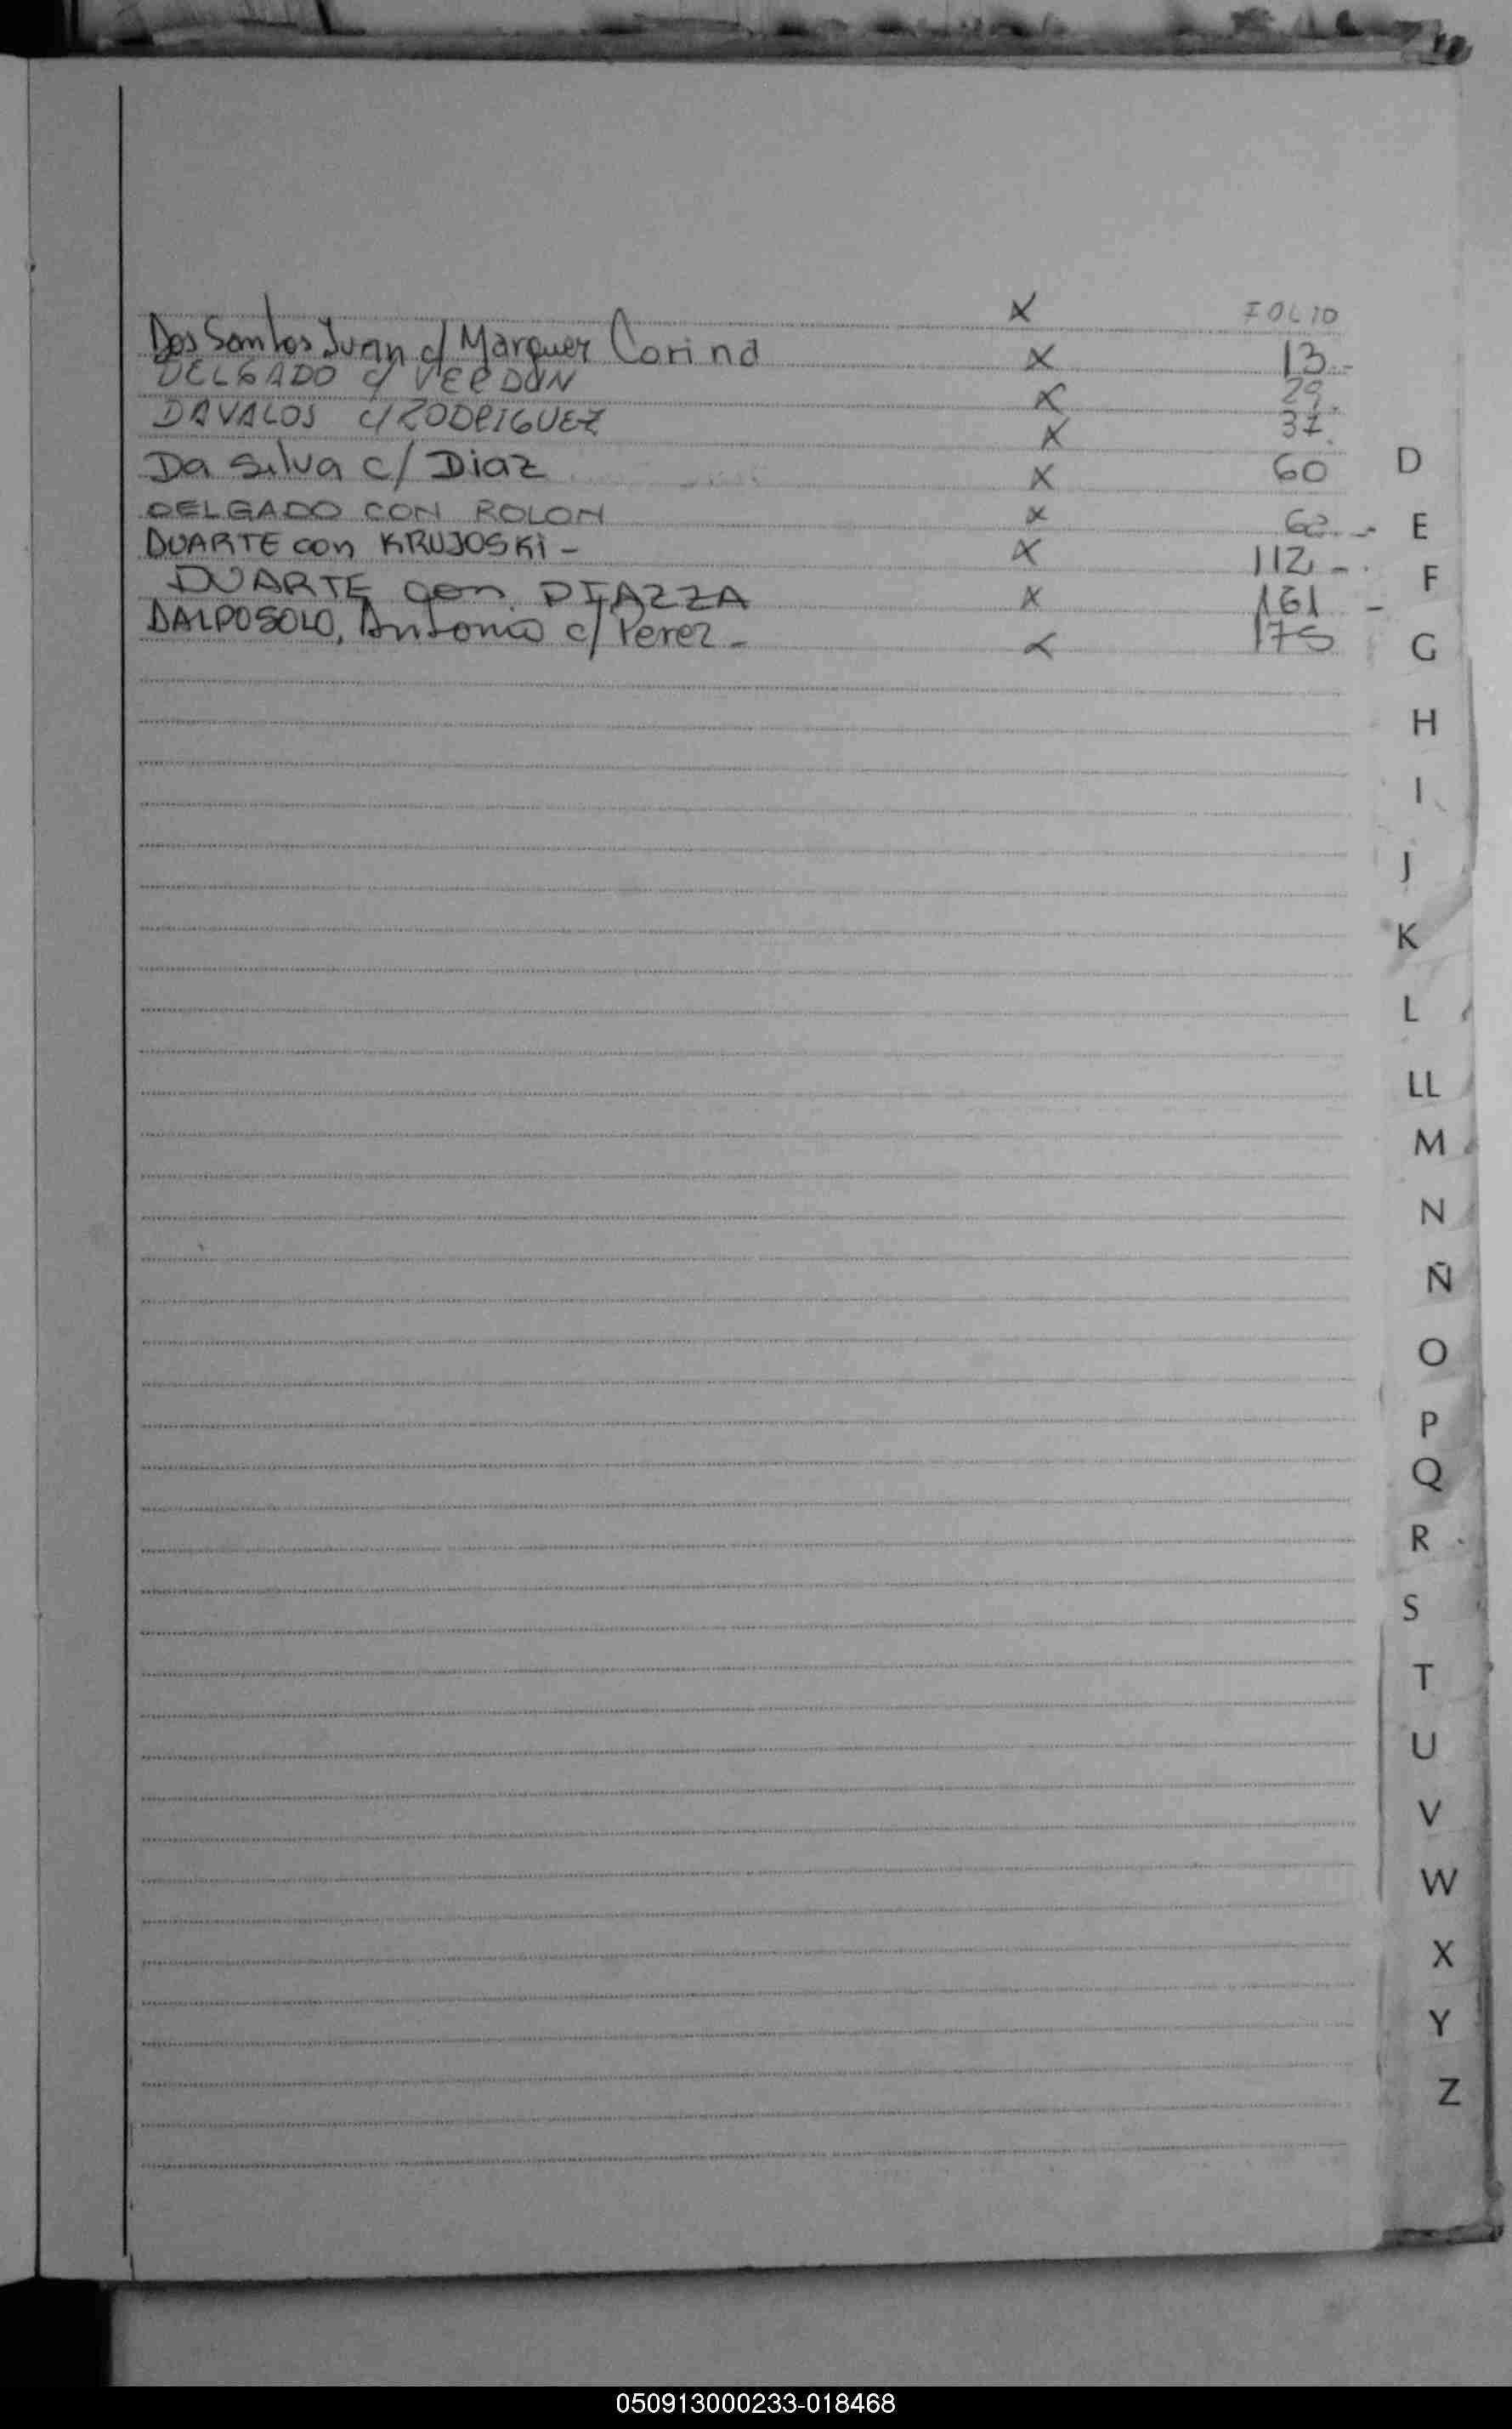 X FOLIO
Dos Santos Juan c/ Marquez Corina X 13.-
DELGADO c/ VERDUN X 29.
DAVALOS c/ RODRIGUEZ X 37.
Da Silva c/ Diaz X 60
DELGADO CON ROLON x 62.-
DUARTE con KRUJOSKi - X 112 -.
DUARTE con PIAZZA X 161 -
DALPOSOLO, Antonio c/ Perez - X 175
D
E
F
G
H
I
J
K
L
LL
M
N
Ñ
O
P
Q
R
S
T
U
V
W
X
Y
Z
050913000233-018468